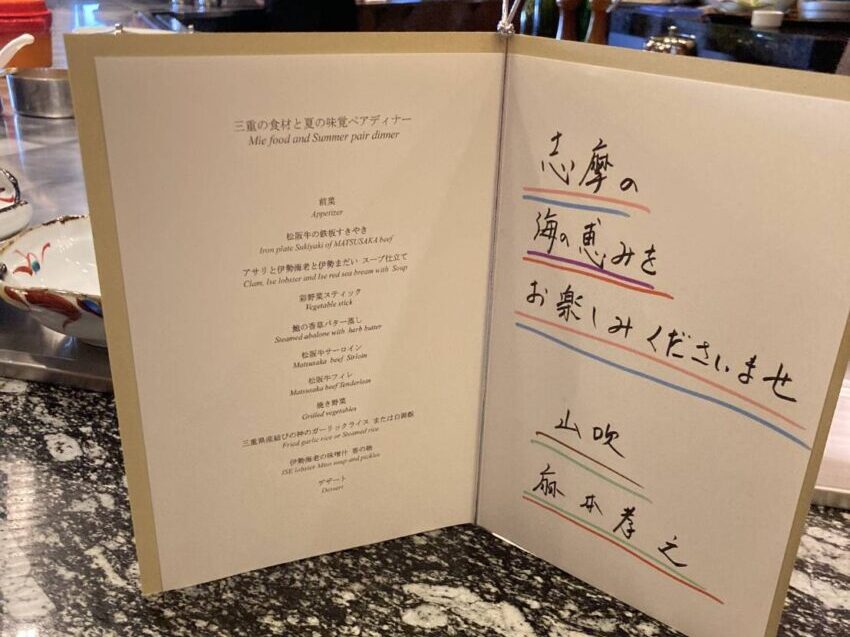 三重の食材と夏の味覚ペアディナー
Mie food and Summer pair dinner
前菜
Appetizer
松阪牛の鉄板すきやき
Iron plate Sukiyaki of MATSUSAKA beef
アサリと伊勢海老と伊勢まだい スープ仕立て
Clam, Ise lobster and Ise red sea bream with Soup
彩野菜スティック
Vegetable stick
鮑の香草バター蒸し
Steamed abalone with harb butter
松阪牛サーロイン
Matsusaka beef Sirloin
松阪牛フィレ
Matsusaka beef Tenderloin
焼き野菜
Grilled vegetables
三重県産結びの神のガーリックライス または白御飯
Fried garlic rice or Steamed rice
伊勢海老の味噌汁 香の物
ISE lobster Miso soup and pickles
デザート
Dessert
志摩の
海の恵みを
お楽しみくださいませ
山吹
麻本孝之